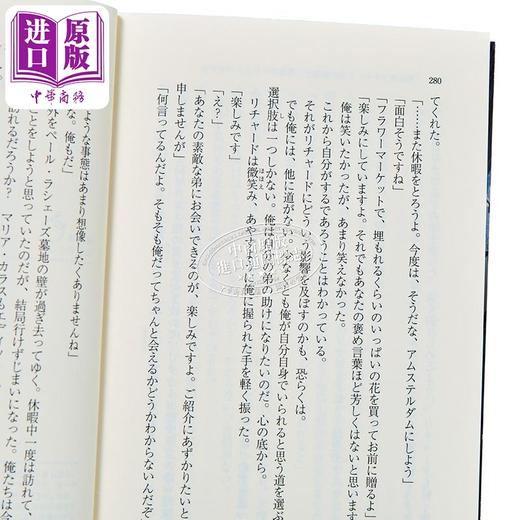 进口
原版
中華商務
280
てくれた。
「……また休暇をとろうよ。今度は、そうだな、アムステルダムにしよう」
「面白そうですね」
「フラワーマーケットで、埋もれるくらいのいっぱいの花を買ってお前に贈るよ」
「楽しみにしていますよ。それでもあなたの褒め言葉ほど芳しくはないと思います
俺は笑いたかったが、あまり笑えなかった。
これから自分がするであろうことはわかっている。
それがリチャードにどういう影響を及ぼすのかも、恐らくは。
でも俺には、他に道がない。少なくとも俺が自分自身でいられると思う道を選ぶ
選択肢は一つしかない。俺は自分の弟の助けになりたいのだ。心の底から。
リチャードは微笑み、あやすように俺に握られた手を軽く振った。
「楽しみです」
「え？」
「あなたの素敵な弟にお会いできるのが、楽しみですよ。ご紹介にあずかりたいと
申しませんが」
「何言ってるんだよ。そもそも俺だってちゃんと会えるかどうかわからないんだぞ
ような事態はあまり想像したくありませんね」
な。俺もだ」
外をペール・ラシェーズ墓地の壁が過ぎ去ってゆく。休暇中一度は訪れて、
ことをしようと思っていたのだが、結局行けずじまいになった。俺たちは今
訪れるだろうか？　マリア・カラスもエディ